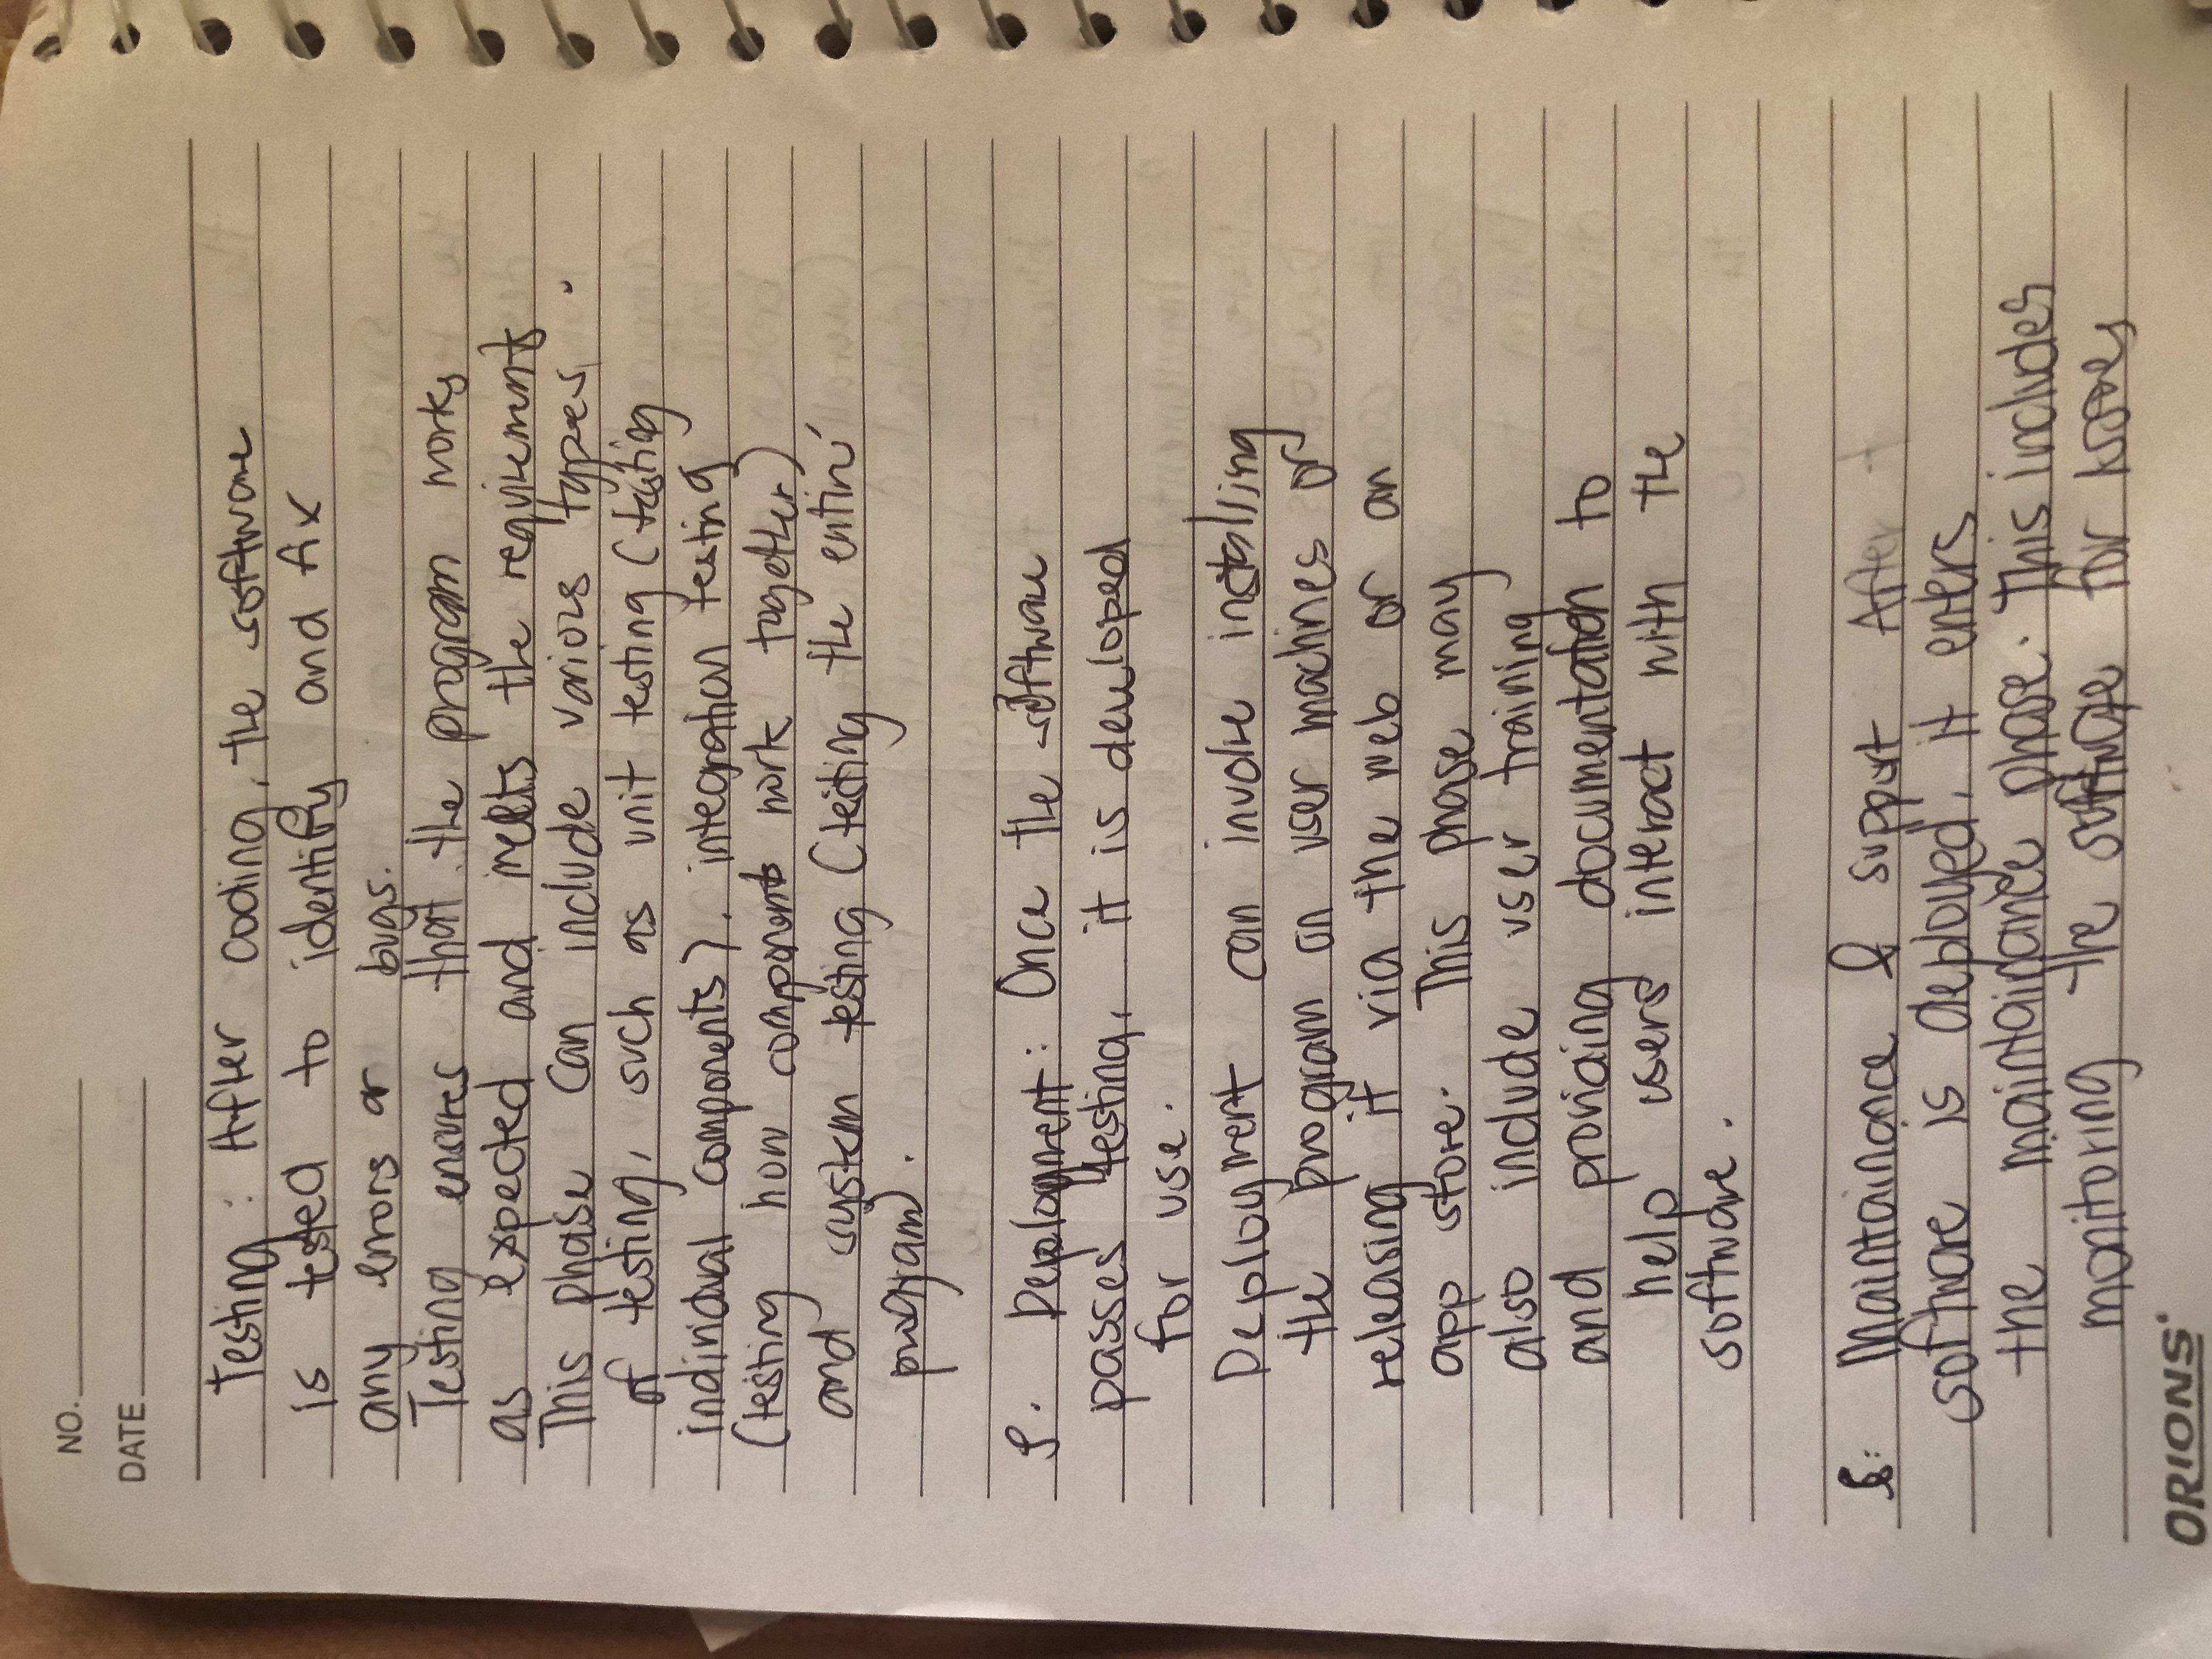 NO.
DATE
Testing : After coding, the software
is tested to identify and fix
any errors or bugs.
Testing ensures that the program works
as expected and meets the requirements
This phase can include various types .
of testing, such as unit testing (testing
individual components), integration testing
(testing how components work together)
and system testing (testing the entire
program).
5. Deployment : Once the software
passes testing, it is developed
for use.
Deployment can involve installing
the program on user machines or
releasing it via the web or an
app store. This phase may
also include user training
and providing documentation to
help users interact with the
software.
6: Maintainance & support After t
software is deployed, it enters
the maintainance phase. This includes
monitoring the software for issues
ORIONS